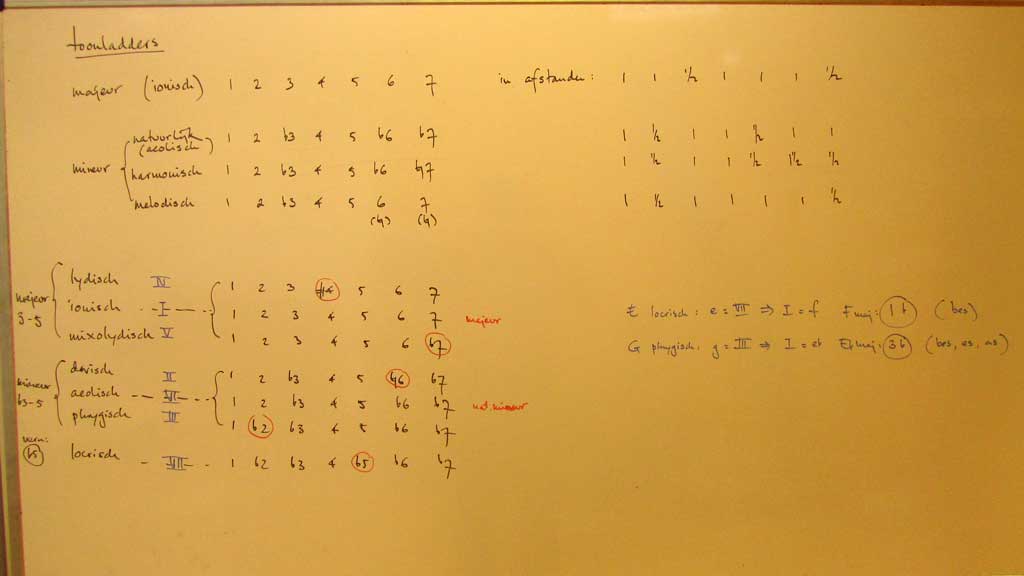 toonladders
majeur (ionisch) 1 2 3 4 5 6 7 in afstanden: 1 1 ½ 1 1 1 ½
natuurlijk 1 2 b3 4 5 b6 b7 1 ½ 1 1 ½ 1 1
(aeolisch)
mineur harmonisch 1 2 b3 4 5 b6 ♮7 1 ½ 1 1 ½ 1½ ½
melodisch 1 2 b3 4 5 6 7 1 ½ 1 1 1 1 ½
(♮) (♮)
lydisch IV 1 2 3 #4 5 6 7
majeur ionisch I 1 2 3 4 5 6 7 majeur
3-5
mixolydisch V 1 2 3 4 5 6 b7
E locrisch: e = VII ⇒ I = f F maj: 1b (bes)
G phrygisch: g = III ⇒ I = eb Eb maj: 3b (bes, es, as)
dorisch II 1 2 b3 4 5 ♮6 b7
mineur aeolisch VI 1 2 b3 4 5 b6 b7 nat. mineur
b3-5
phrygisch III 1 b2 b3 4 5 b6 b7
b5 locrisch VII 1 b2 b3 4 b5 b6 b7